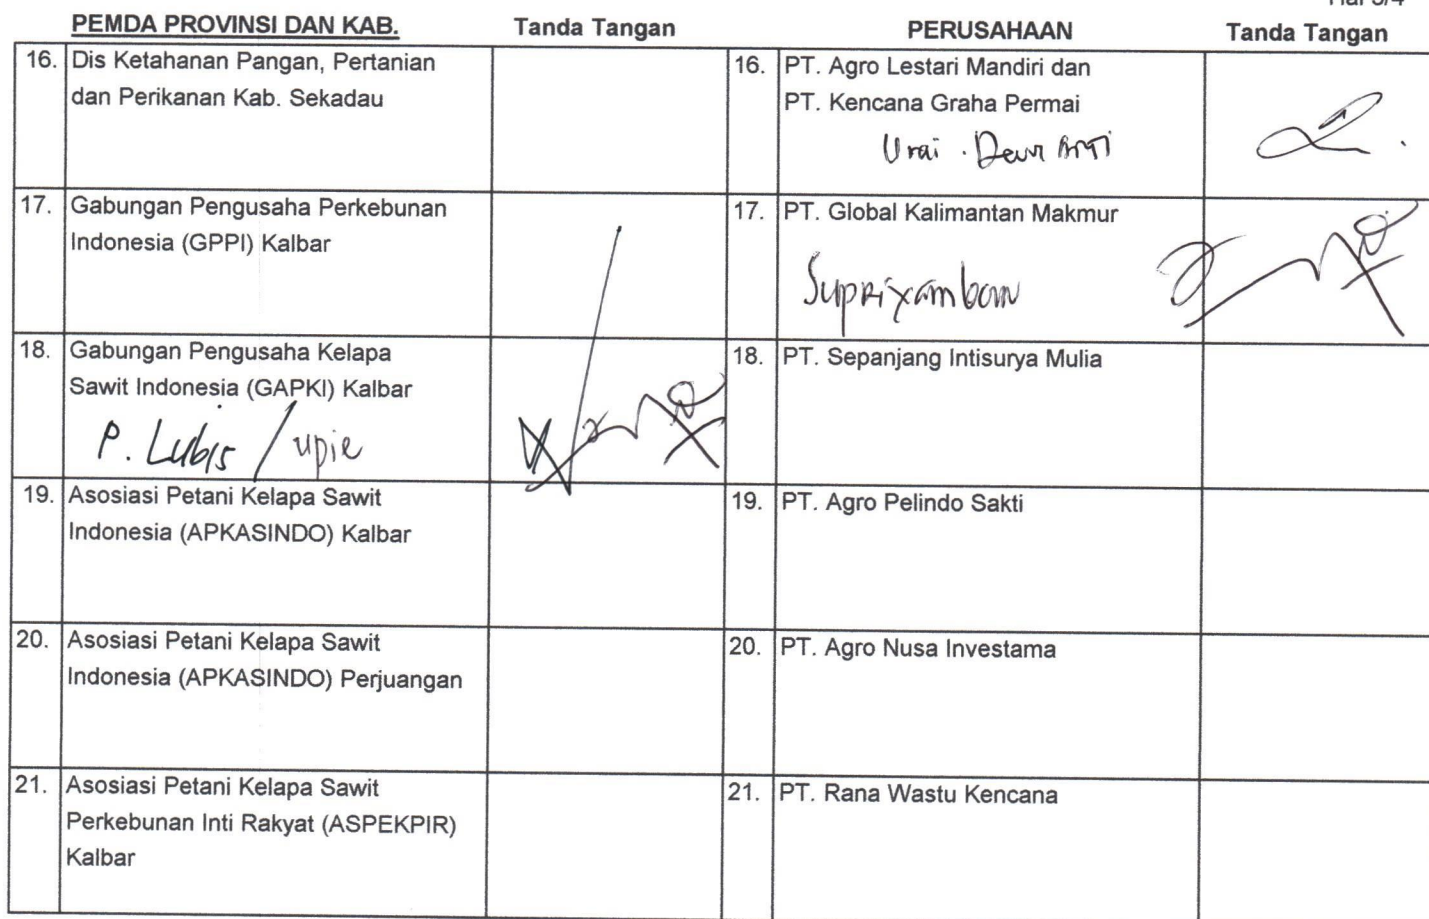 Hal 3/4
PEMDA PROVINSI DAN KAB. Tanda Tangan PERUSAHAAN Tanda Tangan
16. Dis Ketahanan Pangan, Pertanian
dan Perikanan Kab. Sekadau
16. PT. Agro Lestari Mandiri dan
PT. Kencana Graha Permai
Urai . Dewi
17. Gabungan Pengusaha Perkebunan
Indonesia (GPPI) Kalbar
17. PT. Global Kalimantan Makmur
18. Gabungan Pengusaha Kelapa
Sawit Indonesia (GAPKI) Kalbar
P. Lubis / upie
18. PT. Sepanjang Intisurya Mulia
19. Asosiasi Petani Kelapa Sawit
Indonesia (APKASINDO) Kalbar
19. PT. Agro Pelindo Sakti
20. Asosiasi Petani Kelapa Sawit
Indonesia (APKASINDO) Perjuangan
20. PT. Agro Nusa Investama
21. Asosiasi Petani Kelapa Sawit
Perkebunan Inti Rakyat (ASPEKPIR)
Kalbar
21. PT. Rana Wastu Kencana